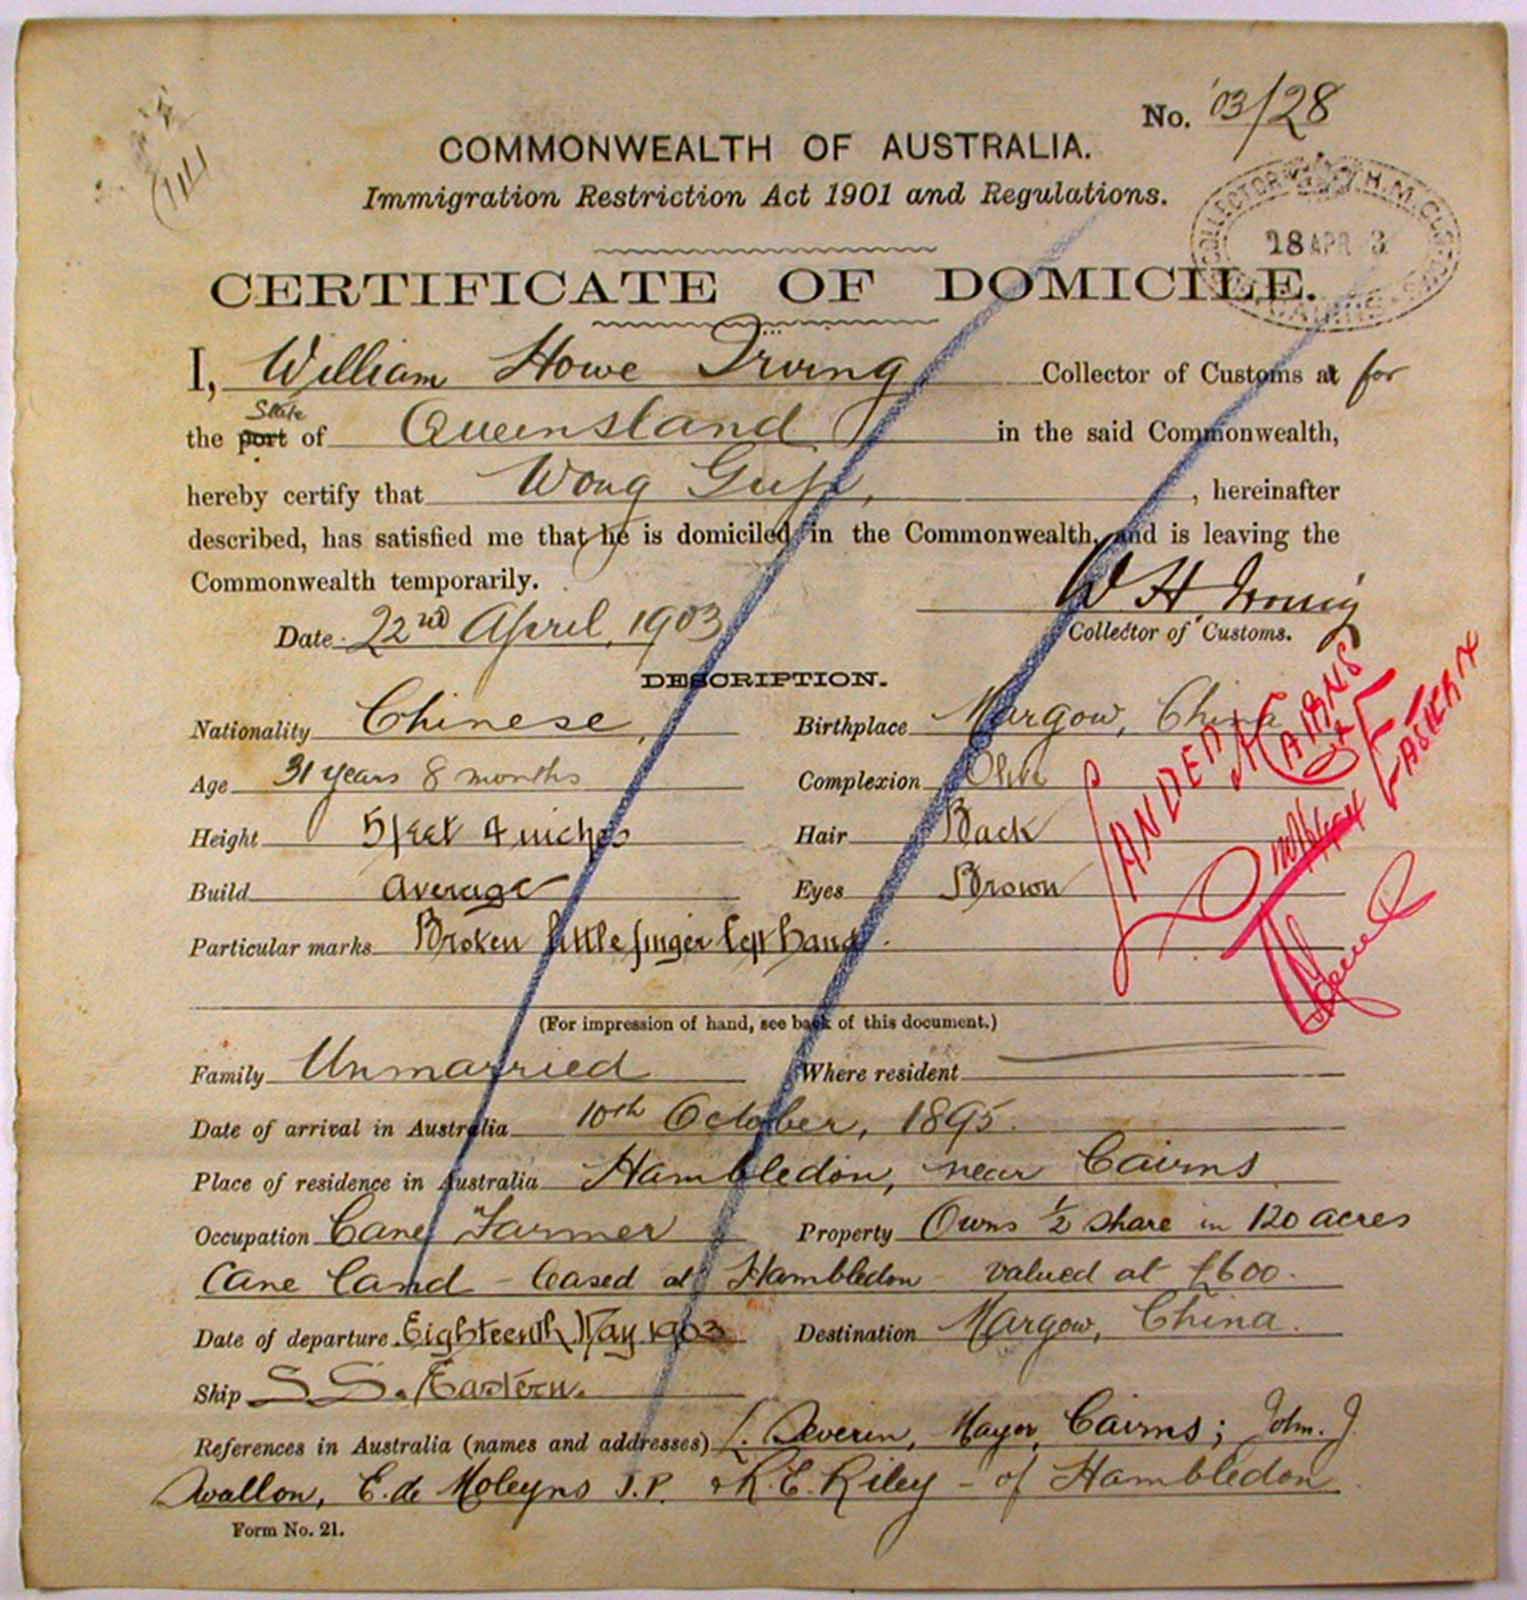 No. '03/28
(114)
COMMONWEALTH OF AUSTRALIA.
Immigration Restriction Act 1901 and Regulations.
COLLECTOR H.M. CUSTOMS
18 APR 3
CAIRNS
CERTIFICATE OF DOMICILE.
I, William Howe Irving Collector of Customs at for
State
the port of Queensland in the said Commonwealth,
hereby certify that Wong Gup, , hereinafter
described, has satisfied me that he is domiciled in the Commonwealth, and is leaving the
Commonwealth temporarily.
W H Irving
Date 22nd April, 1903
Collector of Customs.
DESCRIPTION.
Nationality Chinese, Birthplace Margow, China
Age 31 years 8 months Complexion Olive
Height 5 feet 4 inches Hair Back
Build average Eyes Brown
Particular marks Broken little finger left hand.
LANDED CAIRNS
EX EASTERN
(For impression of hand, see back of this document.)
Family Unmarried Where resident
Date of arrival in Australia 10th October, 1895.
Place of residence in Australia Hambledon, near Cairns
Occupation Cane Farmer Property Owns 1/2 share in 120 acres
Cane land - leased at Hambledon - valued at £600.
Date of departure Eighteenth May 1903 Destination Margow, China.
Ship S.S. Eastern.
References in Australia (names and addresses) L. Severin, Mayor, Cairns; John. J.
Swallon, E. de Moleyns J.P. & R. E. Riley - of Hambledon
Form No. 21.